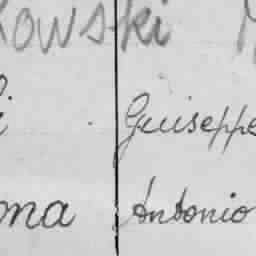 kowski
i Guiseppe
ona Antonio